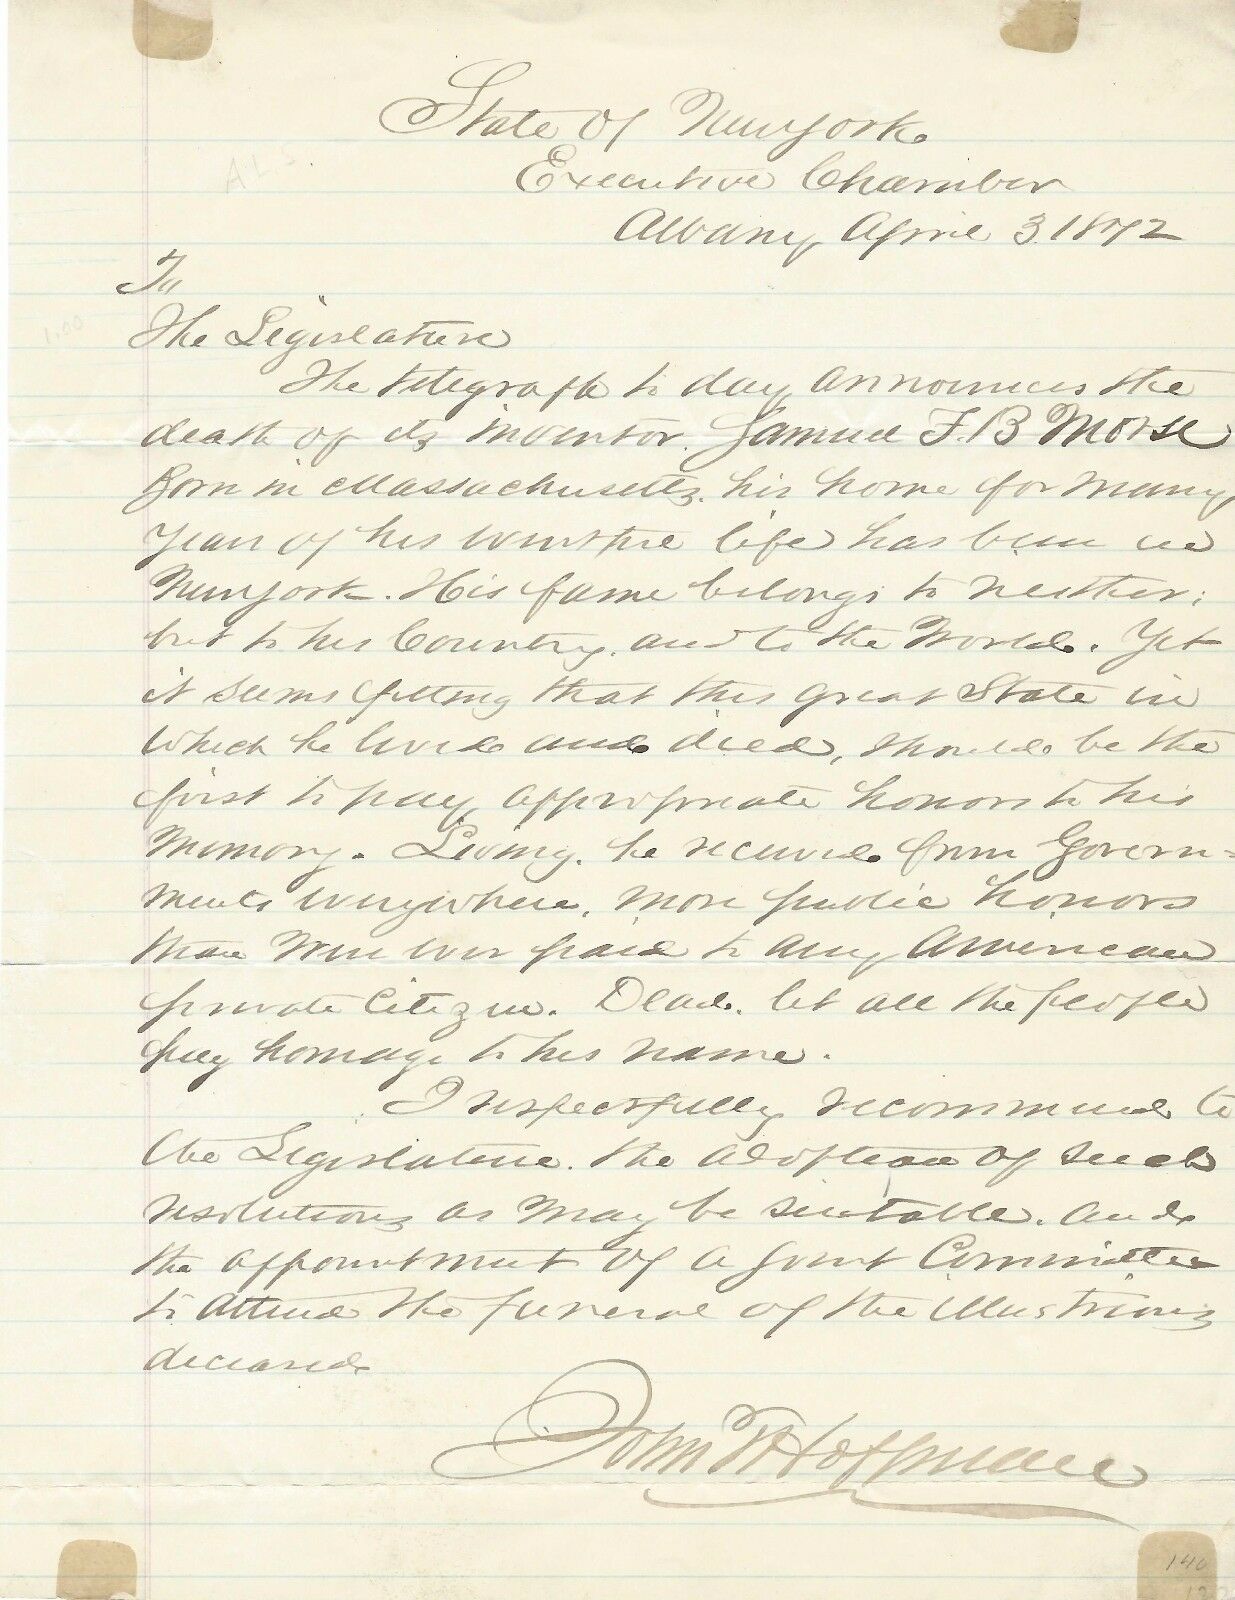 State of New York
Executive Chamber
Albany April 3. 1872
A.L.S.
To
The Legislature
1.00
The telegraph to day announces the
death of its inventor. Samuel F. B Morse
Born in Massachusetts. his home for many
years of his life has been in
New York. His fame belongs to neither;
but to his Country. and to the World. Yet
it seems fitting that this great State in
which he lived and died, should be the
first to pay appropriate honors to his
Memory. Living. he received from Govern=
ments everywhere, more public honors
than were ever paid to any American
private Citizen. Dead. let all the people
pay homage to his name.
I respectfully recommend to
the Legislature. the adoption of such
resolutions as may be suitable. and
the appointment of a Joint Committee
to attend the funeral of the illustrious
deceased
John T Hoffman
140